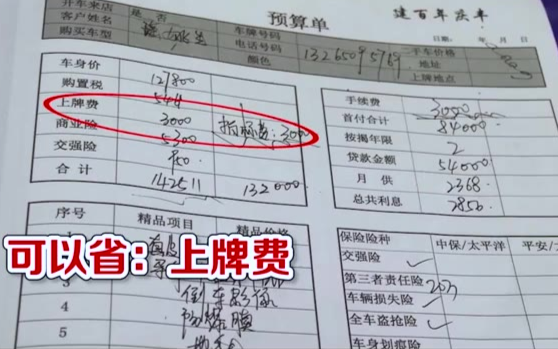 预算单
建百年庆丰
开车来店 是 否
客户姓名 车牌号码 日期： 年 月 日
购买车型 电话号码 13265095769 二手车价格
颜色 地址
上牌地点
车身价 121800
购置税 544
上牌费 3000 指标费:300
商业险 5300
交强险 950
合计 142511 132000
手续费 3000
首付合计 84000
按揭年限 2
贷款金额 54000
月供 2368
总共利息 2856
序号 精品项目 精品价格
3 倒车影像
4 防爆膜
5
保险险种 中保/太平洋 平安/
交强险
第三者责任险 20万
车辆损失险
全车盗抢险
车身划痕险
可以省：上牌费